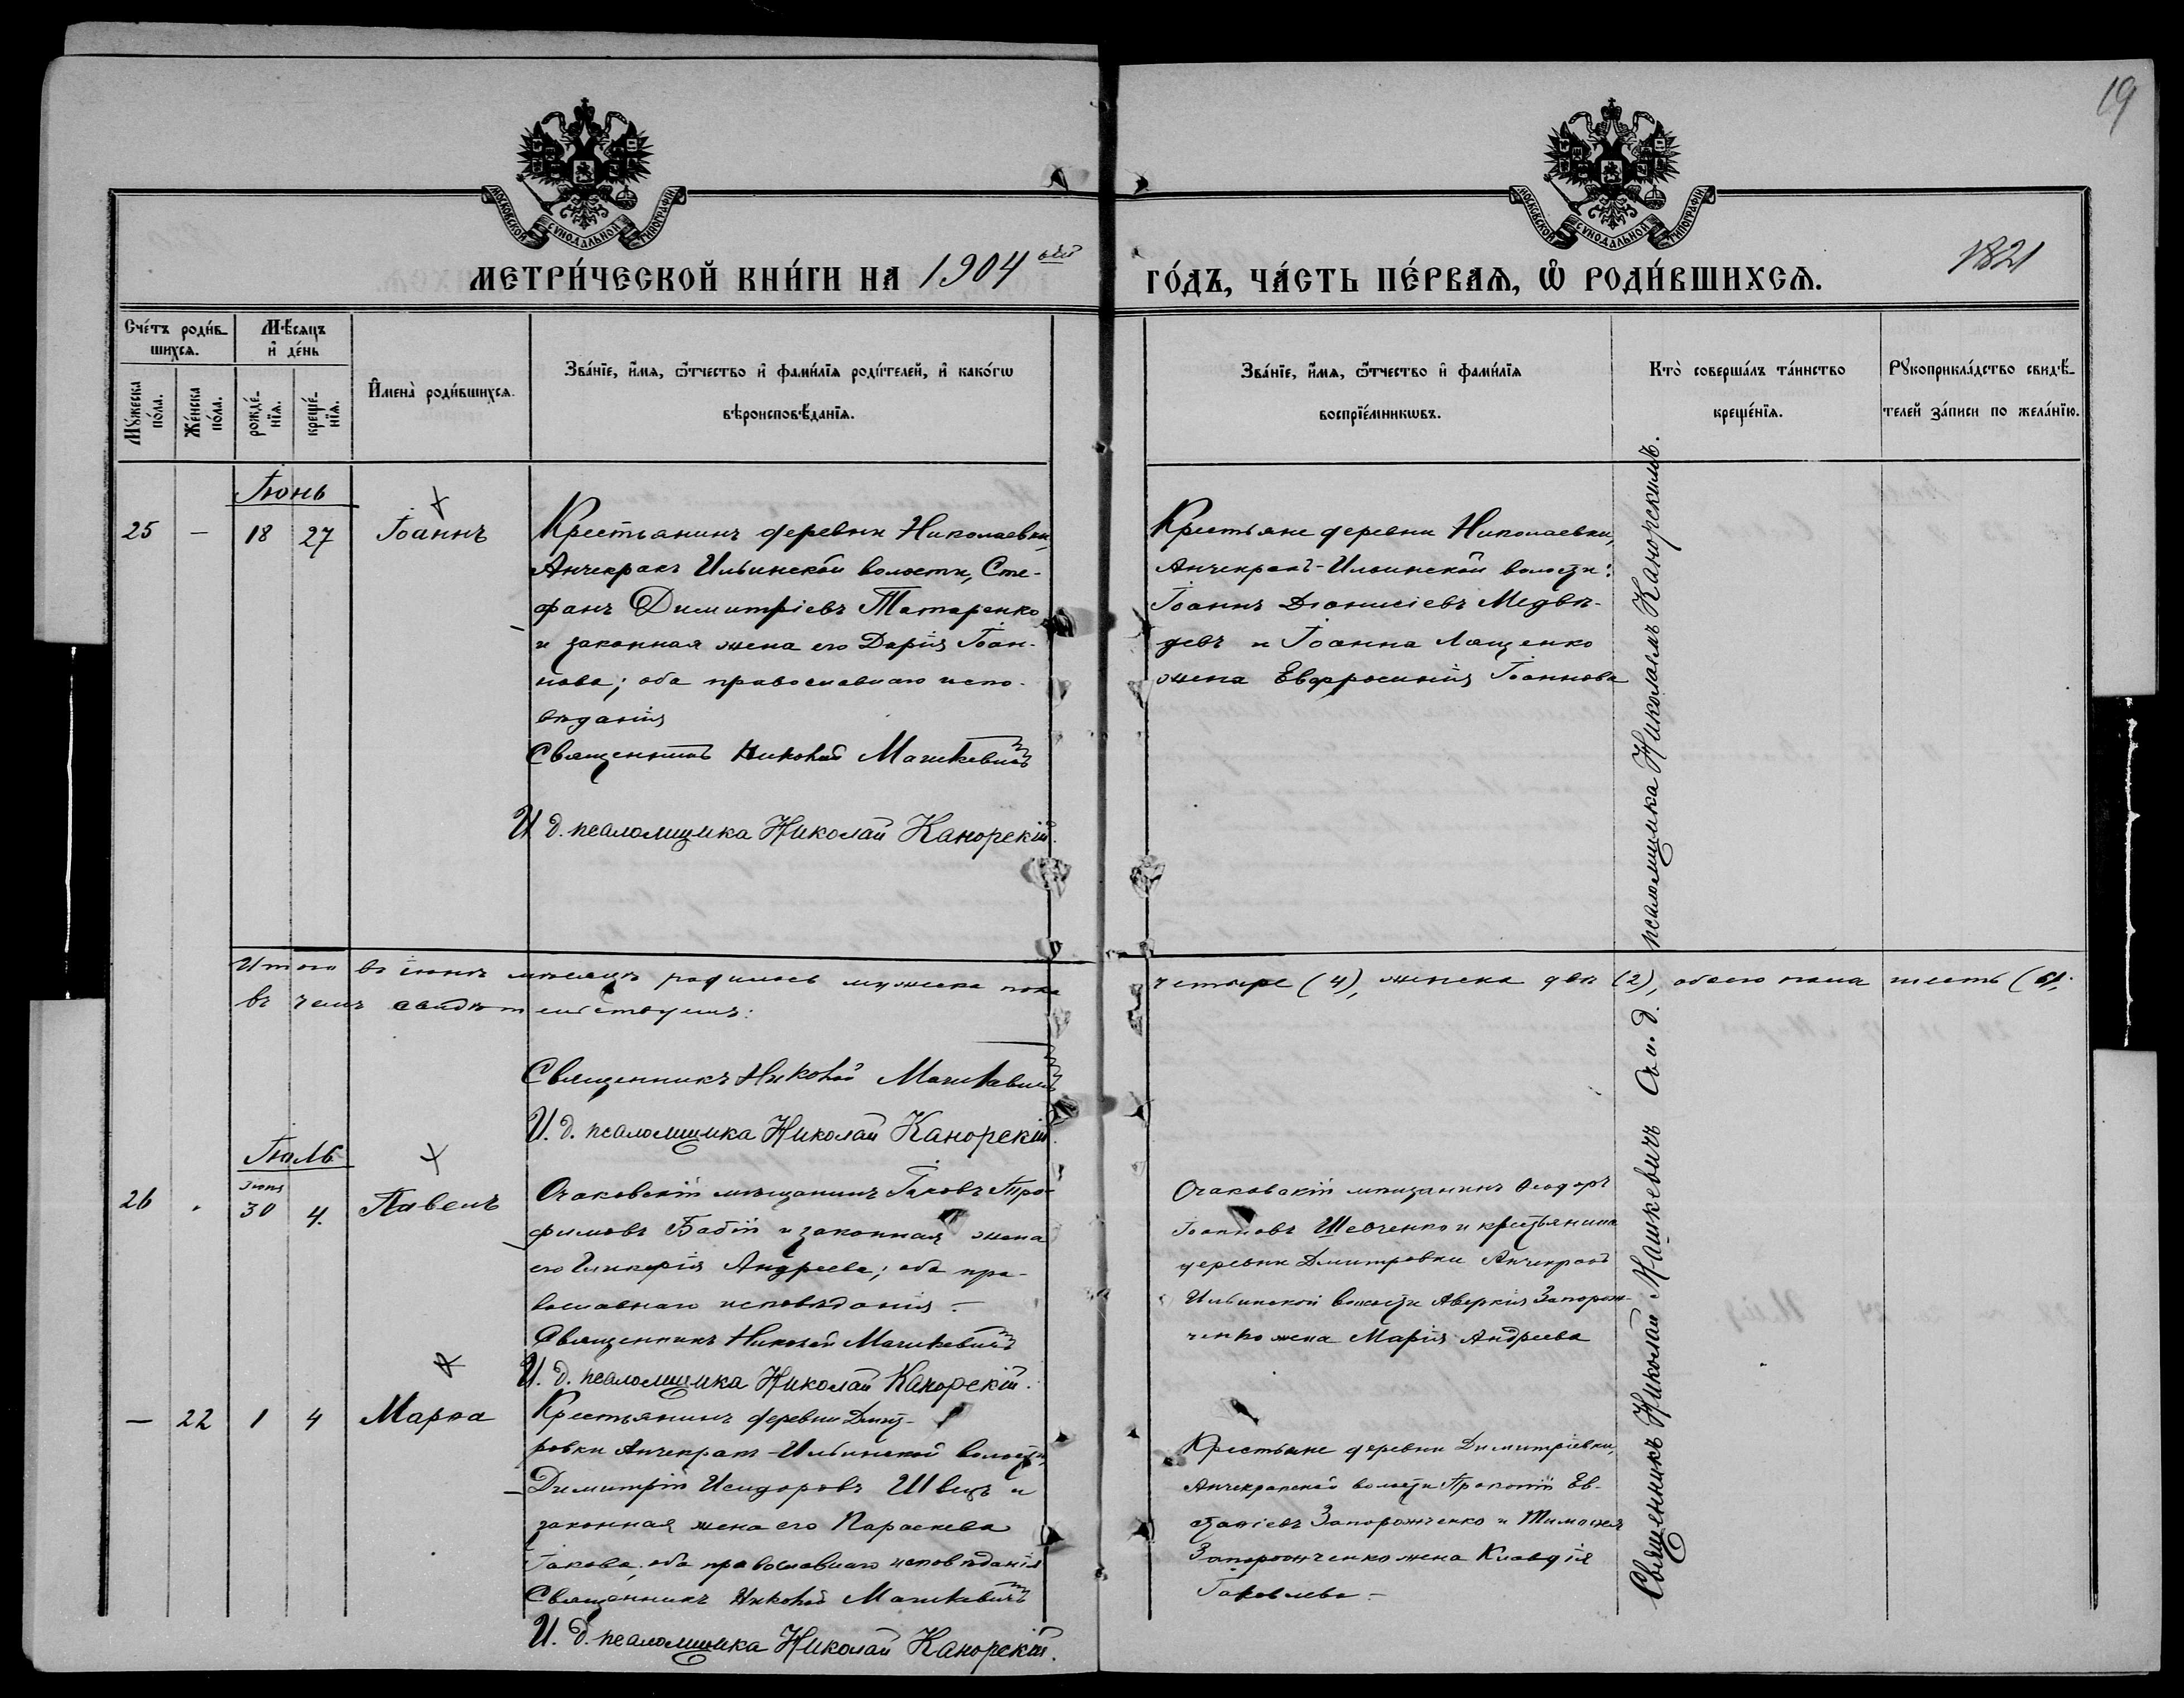 19
МОСКОВСКОЙ СѴНОДАЛЬНОЙ ТИПОГРАФІИ
МОСКОВСКОЙ СѴНОДАЛЬНОЙ ТИПОГРАФІИ
МЕТРИ́ЧЕСКОЙ КНИ́ГИ НА 1904 ый ГО́ДЪ, ЧА́СТЬ ПЕ́РВАѦ, Ѡ҆ РОДИ́ВШИХСѦ.
1821
Сче́тъ роди́в-
шихсѧ.
Мꙋ́жеска по́ла.
Же́нска по́ла.
Мѣ́сѧцъ
и҆ де́нь
рожде́-
нїѧ.
креще́-
нїѧ.
И҆мена̀ роди́вшихсѧ.
Зва́нїе, и҆́мѧ, ѻ҆́тчество и҆ фами́лїѧ роди́телей, и҆ како́гѡ
вѣроисповѣ́данїѧ.
Зва́нїе, и҆́мѧ, ѻ҆́тчество и҆ фами́лїѧ
воспрїе́мникѡвъ.
Кто̀ соверша́лъ та́инство
креще́нїѧ.
Рꙋкоприкла́дство свидѣ́-
телей за́писи по жела́нїю.
Іюнь
25 — 18 27 Іоаннъ
Крестьянинъ деревни Николаевки,
Анчекракъ Ильинской волости, Сте-
фанъ Димитріевъ Татаренко
и законная жена его Дарія Іоан-
нова; оба православнаго испо-
вѣданія
Священникъ Николай Машкевичъ
И. д. псаломщика Николай Канорскій.
Крестьяне деревни Николаевки,
Анчекракъ-Ильинской волости:
Іоаннъ Діонисіевъ Медвѣ-
девъ и Іоанна Лащенко
жена Евфросинія Іоаннова
Итого въ іюнѣ мѣсяцѣ родилось мужеска пола четыре (4), женска двѣ (2), обоего пола шесть (6),
въ чемъ свидѣтельствуемъ:
Священникъ Николай Машкевичъ
И. д. псаломщика Николай Канорскій.
Іюль
26 . Іюня 30 4. Павелъ
Очаковскій мѣщанинъ Іаковъ Тро-
фимовъ Бабій и законная жена
его Гликерія Андреева; оба пра-
вославнаго исповѣданія.—
Священникъ Николай Машкевичъ
И. д. псаломщика Николай Канорскій.
Очаковскій мѣщанинъ Ѳеодоръ
Іоанновъ Шевченко и крестьянина
деревни Дмитровки Анчекракъ
Ильинской волости Аверкія Запорож-
ченко жена Марія Андреева
— 22 1 4 Марѳа
Крестьянинъ деревни Дмит-
ровки Анчекракъ-Ильинской волости,
Димитрій Исидоровъ Швецъ и
законная жена его Параскева
Іакова, оба православнаго исповѣданія
Священникъ Николай Машкевичъ
И. д. псаломщика Николай Канорскій.
Крестьяне деревни Димитріевки,
Анчекракской волости Прокопій Ев-
стаѳіевъ Запорожченко и Тимоѳея
Запорожченко жена Клавдія
Іаковлева.—
Священникъ Николай Машкевичъ Съ и. д. псаломщика Николаемъ Канорскимъ.